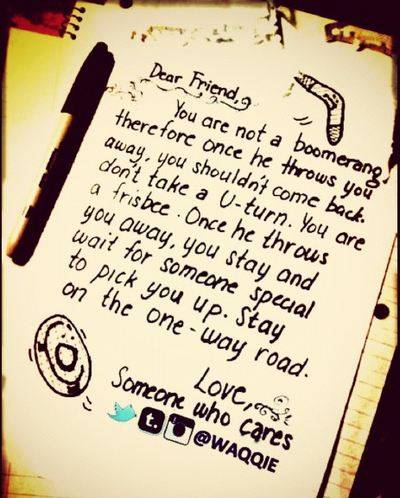 Dear Friend,
You are not a boomerang
therefore once he throws you
away, you shouldn't come back.
don't take a U-turn. You are
a frisbee. Once he throws
you away, you stay and
wait for someone special
to pick you up. Stay
on the one-way road.
Love,
Someone who cares
t
@WAQQIE